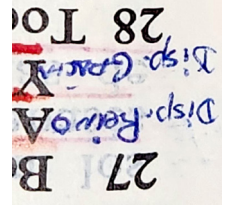 27 B
Disp. Reino A
Disp. Gracia Y
28 Too